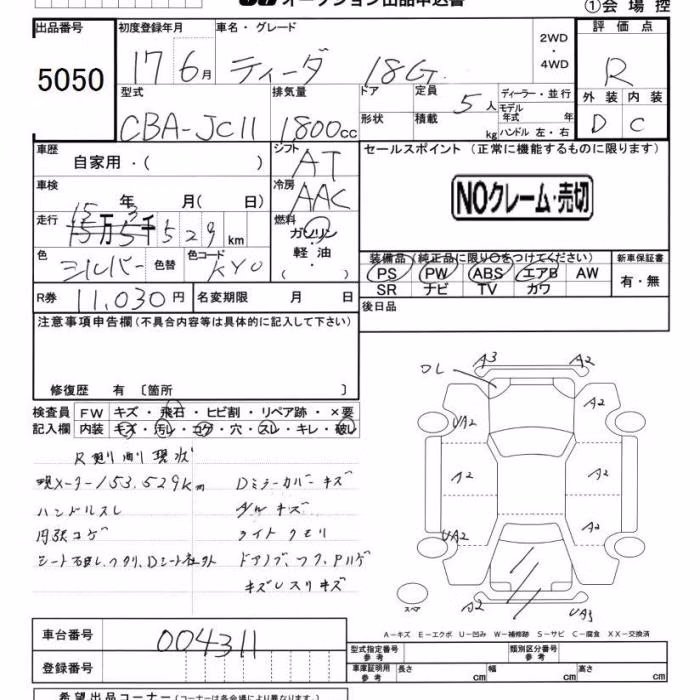 オークション出品申込書
①会場控
出品番号 初度登録年月 車名・グレード 2WD・4WD 評価点
5050 17 6月 ティーダ 18G R
型式 排気量 ドア 定員 5人 ディーラー・並行 外装 内装
CBA-JC11 1800cc 形状 積載 kg モデル年式 年 ハンドル 左・右 D C
車歴 自家用・( ) シフト AT セールスポイント (正常に機能するものに限ります)
車検 年 月( 日) 冷房 AAC
NOクレーム・売切
走行 15万5千 15 3 529 km 燃料 ガソリン・軽油・( )
色 シルバー 色替 色コード KY0
装備品 (純正品に限り○をつけてください) 新車保証書
PS PW ABS エアB AW 有・無
SR ナビ TV カワ
R券 11,030円 名変期限 月 日 後日品
注意事項申告欄(不具合内容等は具体的に記入して下さい)
修復歴 有 〔箇所 〕
検査員 FW キズ・飛石・ヒビ割・リペア跡・×要
記入欄 内装 キズ・汚レ・コゲ・穴・スレ・キレ・破レ
現メーター153,529km Dミラーカバーキズ
ハンドルスレ
内張コゲ ライトクモリ
キズレスリキズ
A3 A2
UA2 A2
A2 A2
UA2 A2
A2 UA3
スペア
A-キズ E-エクボ U-凹み W-補修跡 S-サビ C-腐食 XX-交換済
車台番号 004311
登録番号
型式指定番号 参考 類別区分番号 参考
車庫証明用 参考 長さ cm 幅 cm 高さ cm
希望出品コーナー (コーナーは各会場により異なります。)